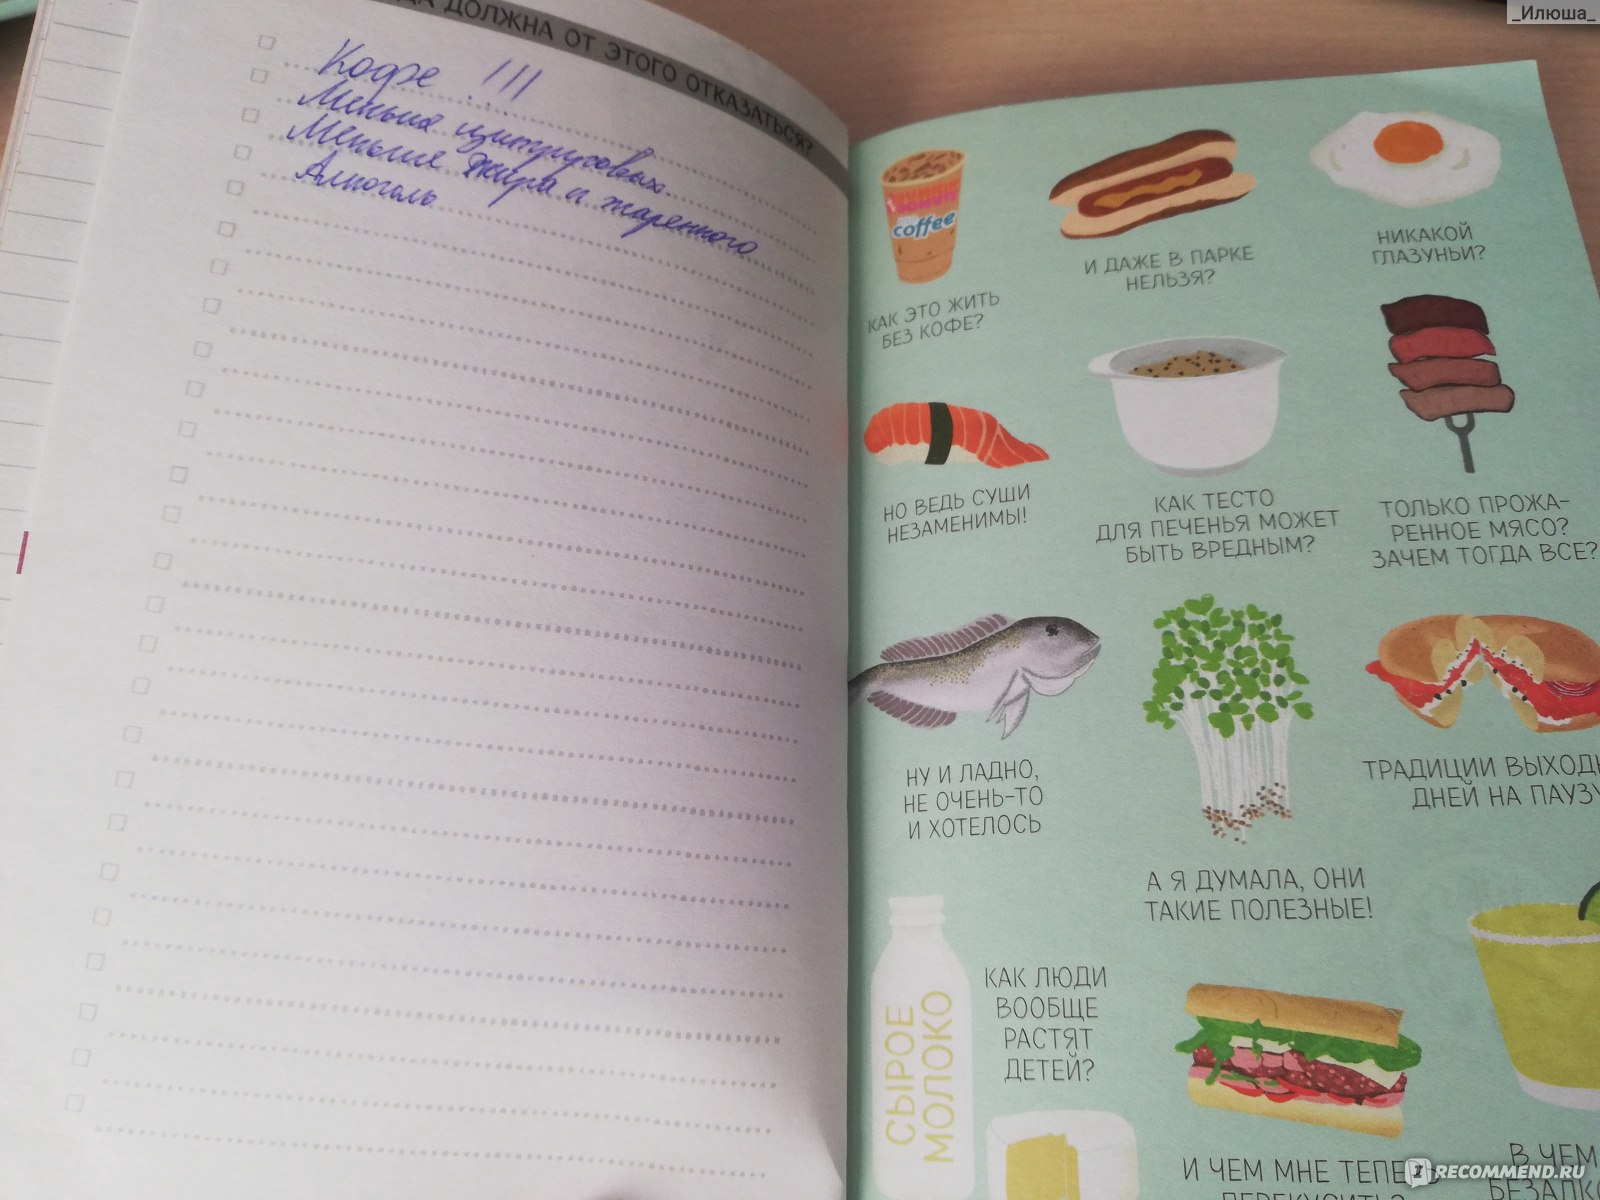 _Илюша_
ДОЛЖНА ОТ ЭТОГО ОТКАЗАТЬСЯ?
Кофе !!!
Меньше цитрусовых
Меньше жира и жаренного
Алкоголь
DONUTS
coffee
КАК ЭТО ЖИТЬ
БЕЗ КОФЕ?
И ДАЖЕ В ПАРКЕ
НЕЛЬЗЯ?
НИКАКОЙ
ГЛАЗУНЬИ?
НО ВЕДЬ СУШИ
НЕЗАМЕНИМЫ!
КАК ТЕСТО
ДЛЯ ПЕЧЕНЬЯ МОЖЕТ
БЫТЬ ВРЕДНЫМ?
ТОЛЬКО ПРОЖА-
РЕННОЕ МЯСО?
ЗАЧЕМ ТОГДА ВСЕ?
НУ И ЛАДНО,
НЕ ОЧЕНЬ-ТО
И ХОТЕЛОСЬ
А Я ДУМАЛА, ОНИ
ТАКИЕ ПОЛЕЗНЫЕ!
ТРАДИЦИИ ВЫХОДН
ДНЕЙ НА ПАУЗУ
СЫРОЕ
МОЛОКО
КАК ЛЮДИ
ВООБЩЕ
РАСТЯТ
ДЕТЕЙ?
И ЧЕМ МНЕ ТЕПЕРЬ
ПЕРЕКУСИТЬ?
В ЧЕМ
IRECOMMEND.RU